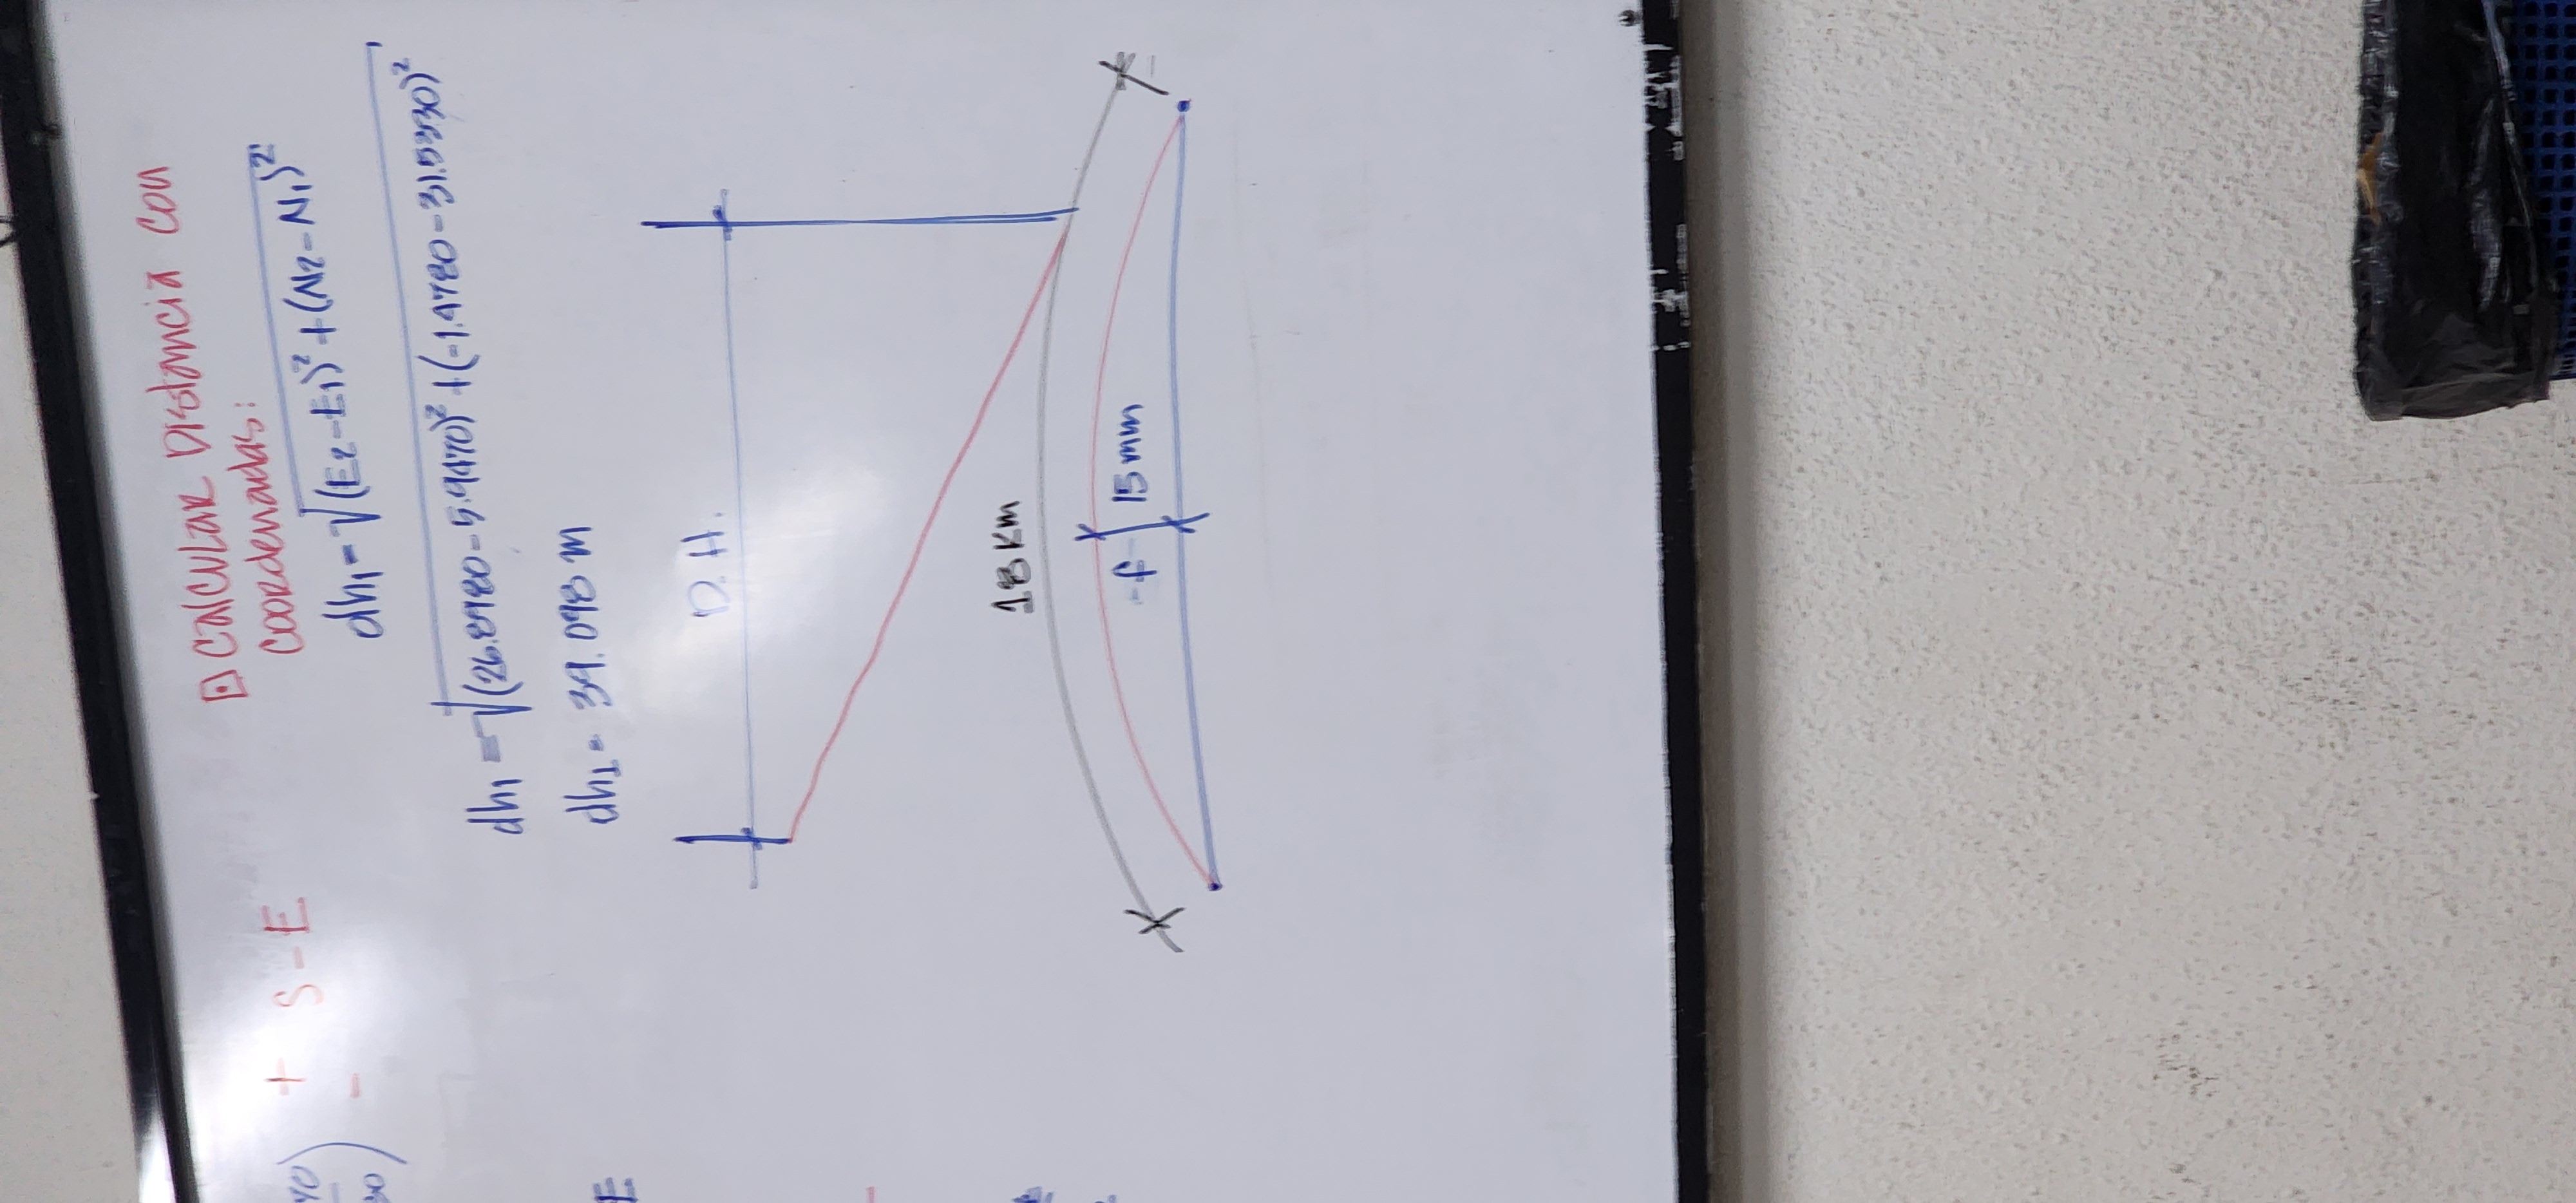 ⊡ Calcular Distancia Con
Coordenadas:
+ S-E
-
dh₁=√(E₂-E₁)²+(N₂-N₁)²
dh₁=√(26.8980-5.9470)²+(-1.4780-31.5330)²
dh₁= 39.098 m
E
D.H.
18 Km
f 15 mm